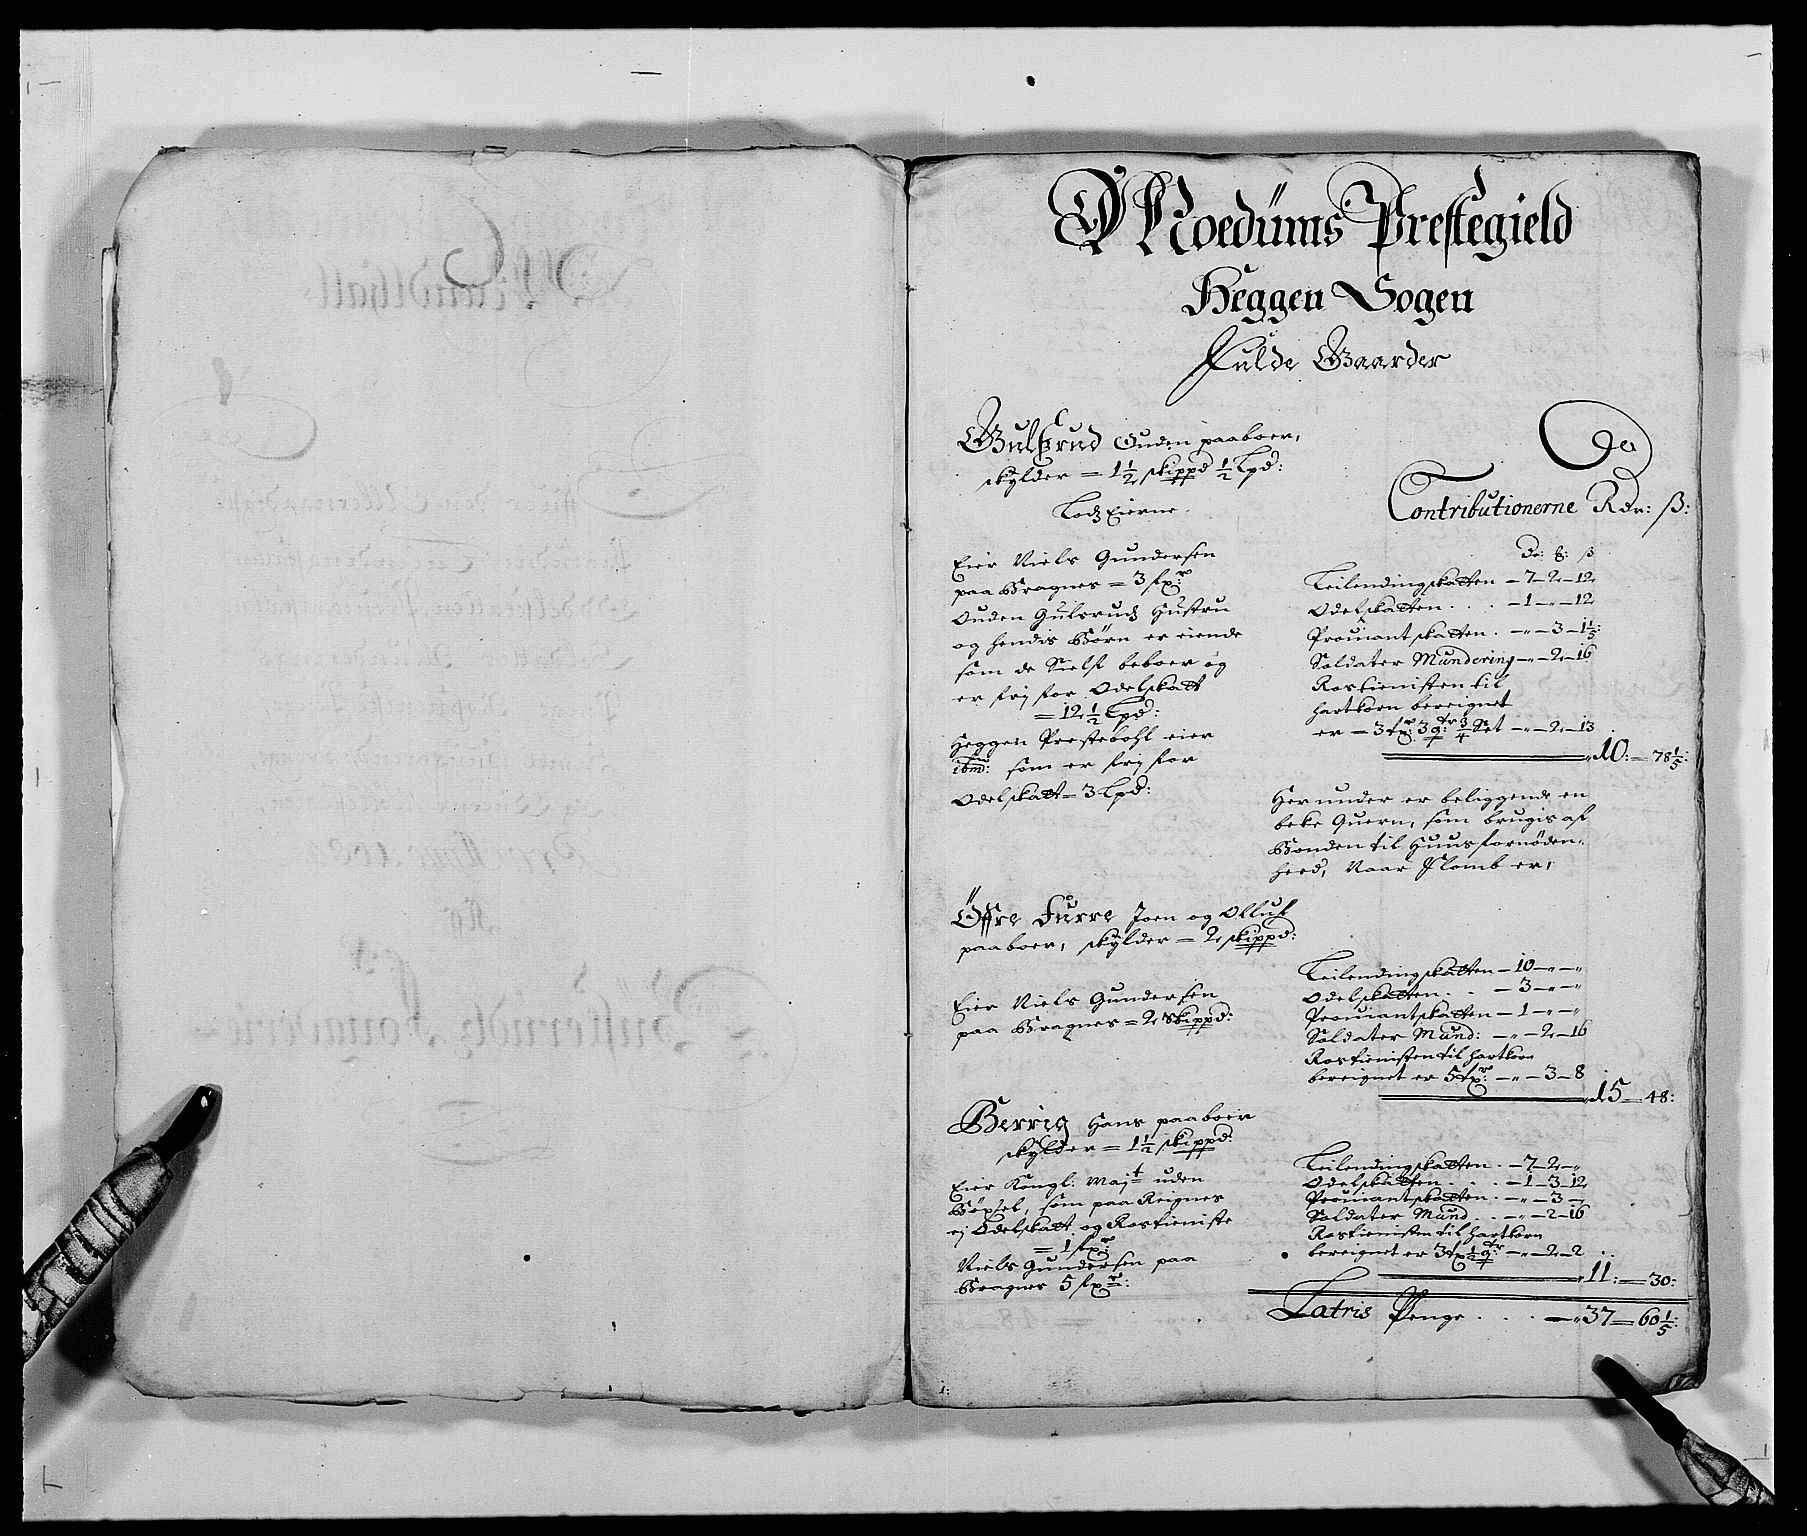 Moedums Prestegield
Heggen Sogen
Fulde Gaarder
Gulsrud Ouden paaboer,
skylder = 1 1/2 skippd 1/2 Lpd:
Lodz Eierne.
Contributionerne Rdr: ß:
Eier Niels Gundersen
paa Bragnes = 3 fxr:
Ouden Gulsrudz Hustru
og hendis Børn er eiende
som de Sielf beboer og
er frj for Odelskatt
= 12 1/2 Lpd:
Heggen Prestebohl eier
ibm: som er frj for
Odelskatt = 3 Lpd:
Dr: ß
Leilendingskatten – 7 – 2 – 12
Odelskatten . . . – 1 – „ – 12
Prouiantskatten . – „ – 3 – 1 1/5:
Soldater Mundering – „ – 2 – 16
Rostienisten til
hartkorn bereignet
er = 3 txr: 3 qtr: 3/4 Set – „ – 2 – 13
10: – 78 1/5:
Her under er beliggende en
beke Quern, som brugis af
Bonden til Huusfornøden-
heed, Naar Flomb er,
Øffre Furre Joen og Olluf
paaboer, skylder = 2 skippd:
Eier Niels Gundersen
paa Bragnes = 2 skippd:
Leilendingskatten – 10 – „ – „
Odelskatten . . – 3 – „ – „
Prouiantskatten – 1 – „ – „
Soldater Mund: – „ – 2 – 16
Rostienisten til hartkorn
bereignet er 5 txr: – „ – 3 – 8
15 – 48:
Berrig Hans paaboer
skylder = 1 1/2 skippd:
Eier Kongl: Majt uden
Böxsel, som paa Reignes
ej Odelskatt og Rostieniste
= 1 fxr:
Niels Gundersen paa
Bragnes 5 fxr:
Leilendingskatten . – 7 – 2 – „
Odelskatten . . . – 1 – 3 – 12
Prouiantskatten . – „ – 3 – „
Soldater Mund . . – „ – 2 – 16
Rostienisten til hartkorn
bereignet er 3 tx 1/2 qtr: – „ – 2 – 2
11: – 30:
Latris Penge . . . – 37 – 60 1/5:
1: